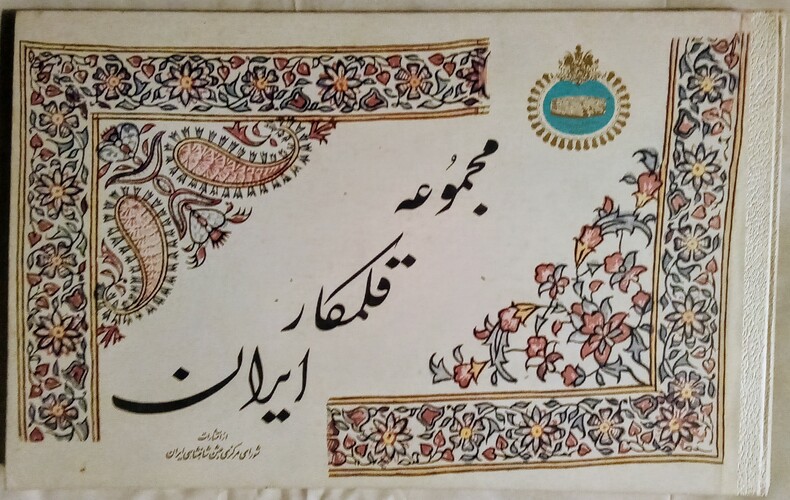 مجموُعه
قلمکار
ایران
از انتشارات
شورای مرکزی جشن شاهنشاهی ایران